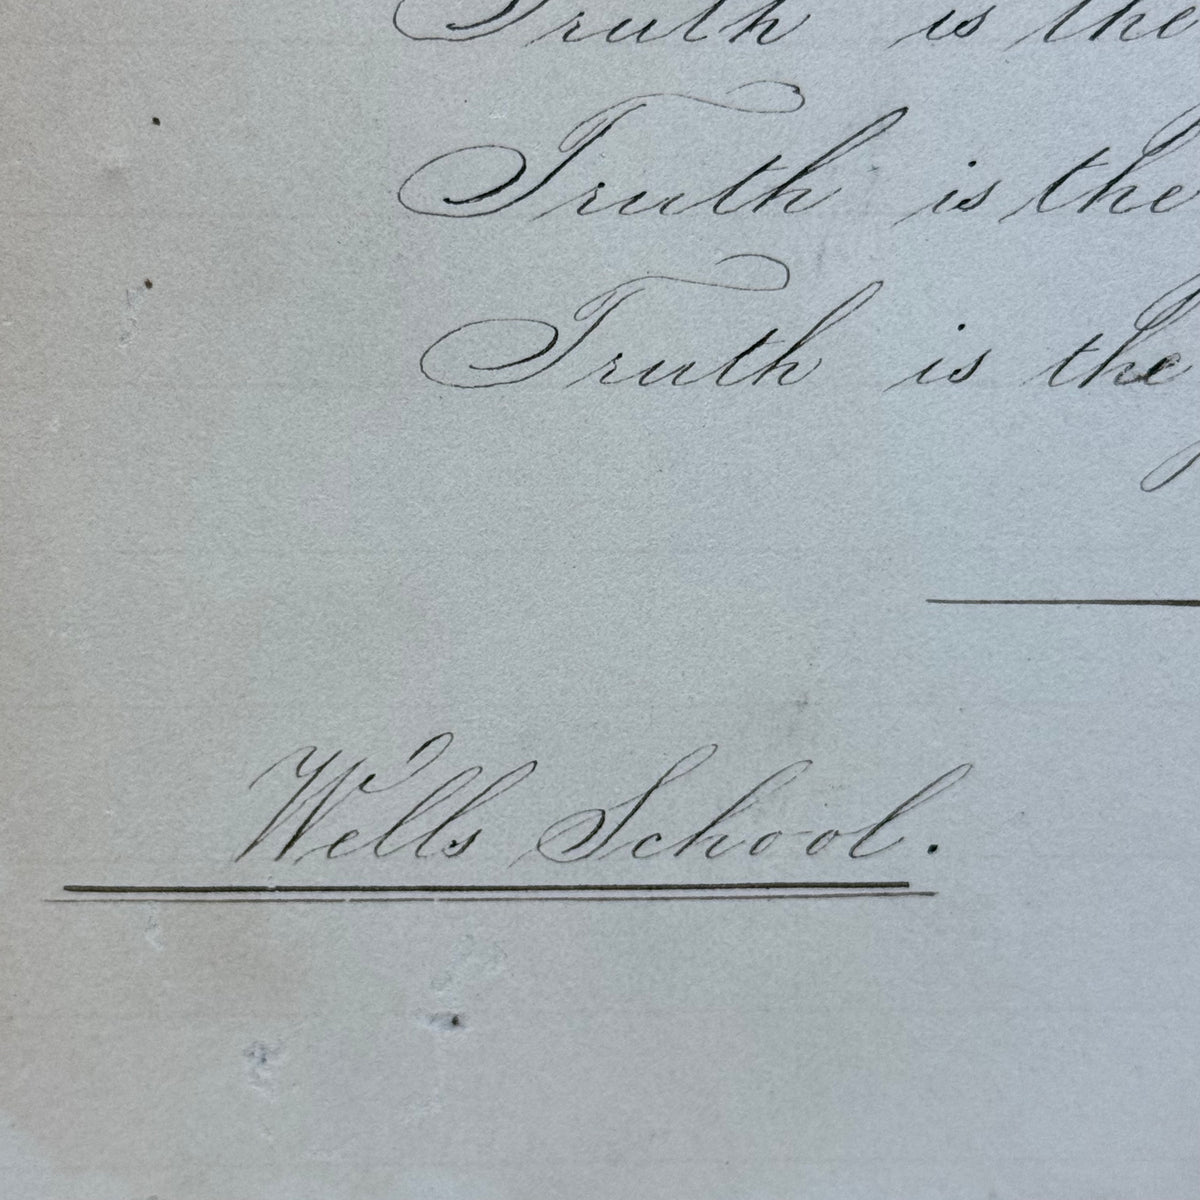 Truth is the
Truth is the
Truth is the
Wells School.